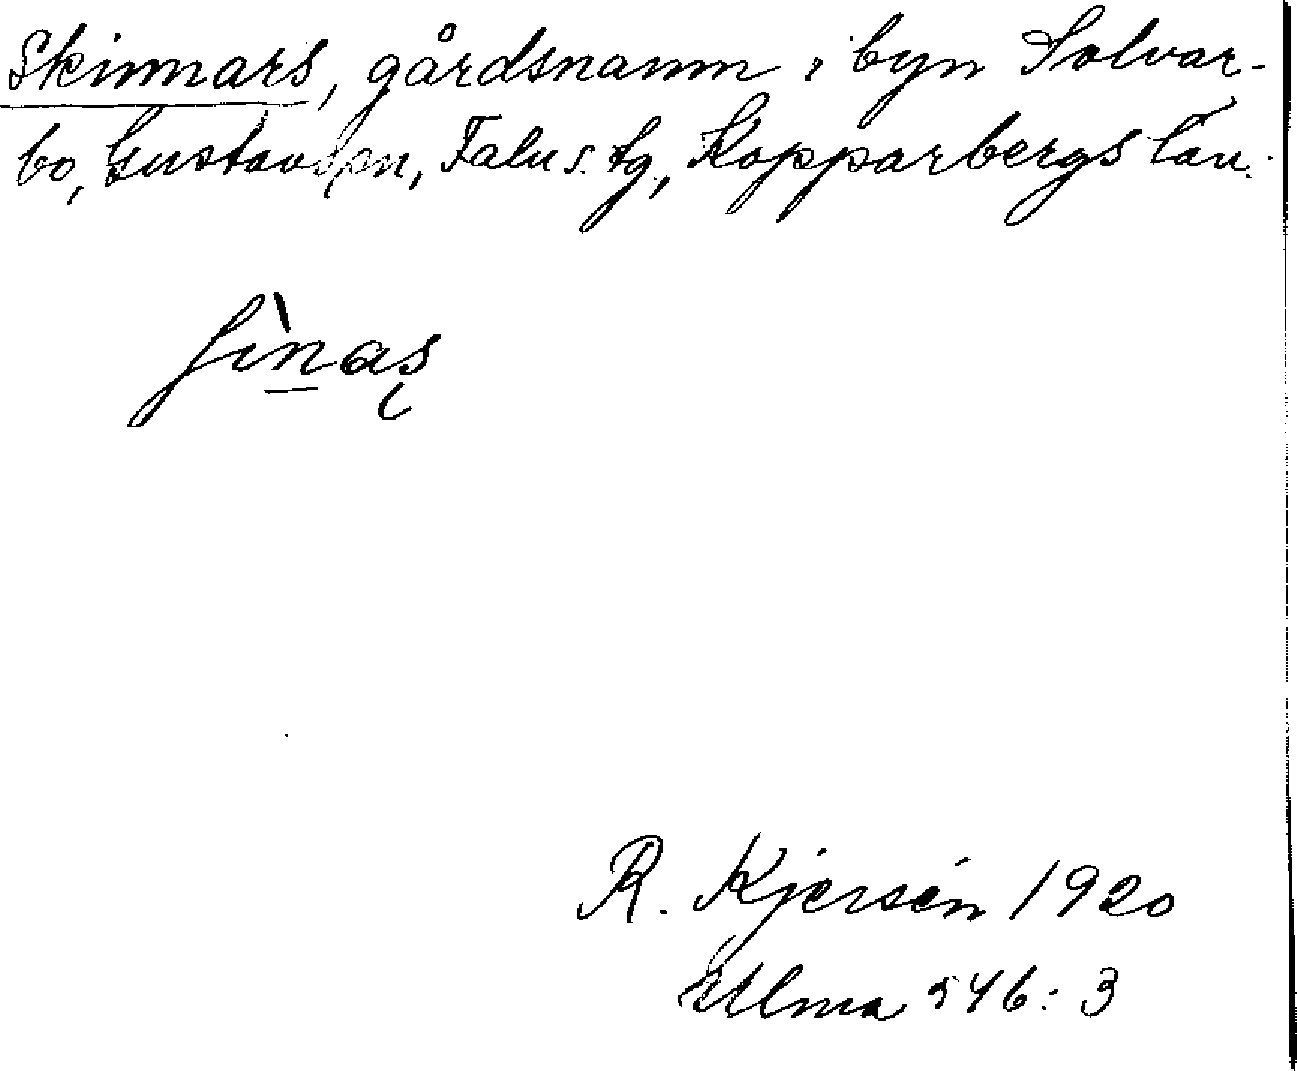 Skinnars, gårdsnamn i byn Solvar-
bo, Gustavs sn, Falu s. tg., Kopparbergs län.
ʃìnas
R. Kjersén 1920
Ulma 546:3